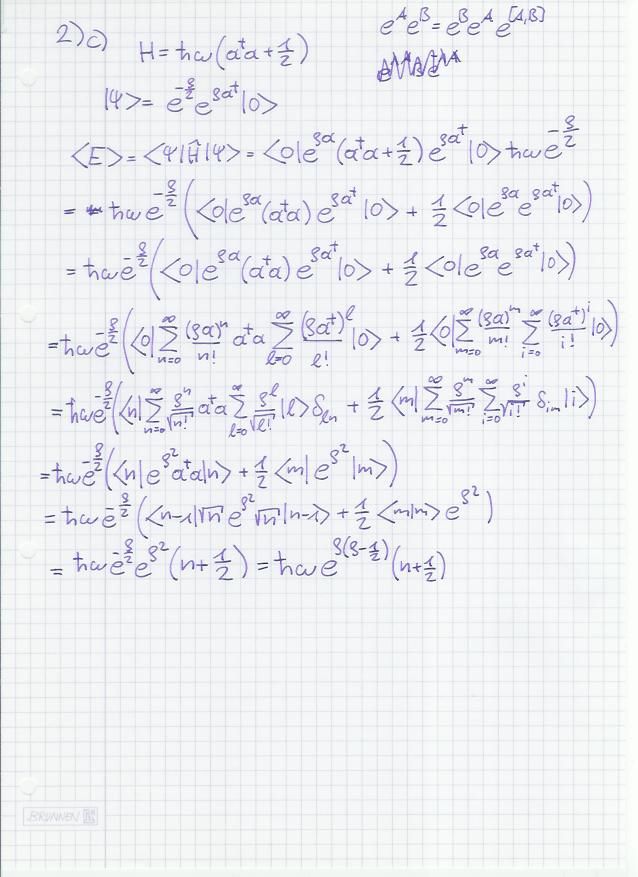 2)c) H = ħω(a†a + 1/2)
e^A e^B = e^B e^A e^[A,B]
|Ψ> = e^(-ϱ/2) e^(ϱa†) |0>
<E> = <Ψ|Ĥ|Ψ> = <0|e^(ϱa) (a†a + 1/2) e^(ϱa†) |0> ħω e^(-ϱ/2)
= ħω e^(-ϱ/2) (<0|e^(ϱa) (a†a) e^(ϱa†) |0> + 1/2 <0|e^(ϱa) e^(ϱa†) |0>)
= ħω e^(-ϱ/2) (<0|e^(ϱa) (a†a) e^(ϱa†) |0> + 1/2 <0|e^(ϱa) e^(ϱa†) |0>)
= ħω e^(-ϱ/2) (<0|∑_(n=0)^∞ (ϱa)^n/n! a†a ∑_(l=0)^∞ (ϱa†)^l/l! |0> + 1/2 <0|∑_(m=0)^∞ (ϱa)^m/m! ∑_(i=0)^∞ (ϱa†)^i/i! |0>)
= ħω e^(-ϱ/2) (<n|∑_(n=0)^∞ ϱ^n/√n! a†a ∑_(l=0)^∞ ϱ^l/√l! |l> δ_ln + 1/2 <m|∑_(m=0)^∞ ϱ^m/√m! ∑_(i=0)^∞ ϱ^i/√i! δ_im |i>)
= ħω e^(-ϱ/2) (<n|e^(ϱ²) a†a|n> + 1/2 <m|e^(ϱ²)|m>)
= ħω e^(-ϱ/2) (<n-1|√n e^(ϱ²) √n|n-1> + 1/2 <m|m> e^(ϱ²))
= ħω e^(-ϱ/2) e^(ϱ²) (n + 1/2) = ħω e^(ϱ(ϱ-1/2)) (n + 1/2)
BRUNNEN